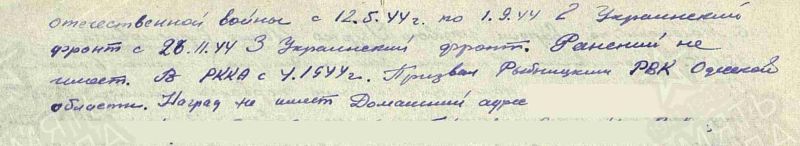 отечественной войны с 12.5.44г. по 1.9.44 2 Украинский
фронт с 26.11.44 3 Украинский фронт. Ранений не
имеет. В РККА с 4.1944г. Призван Рыбницким РВК Одесской
области. Наград не имеет Домашний адрес